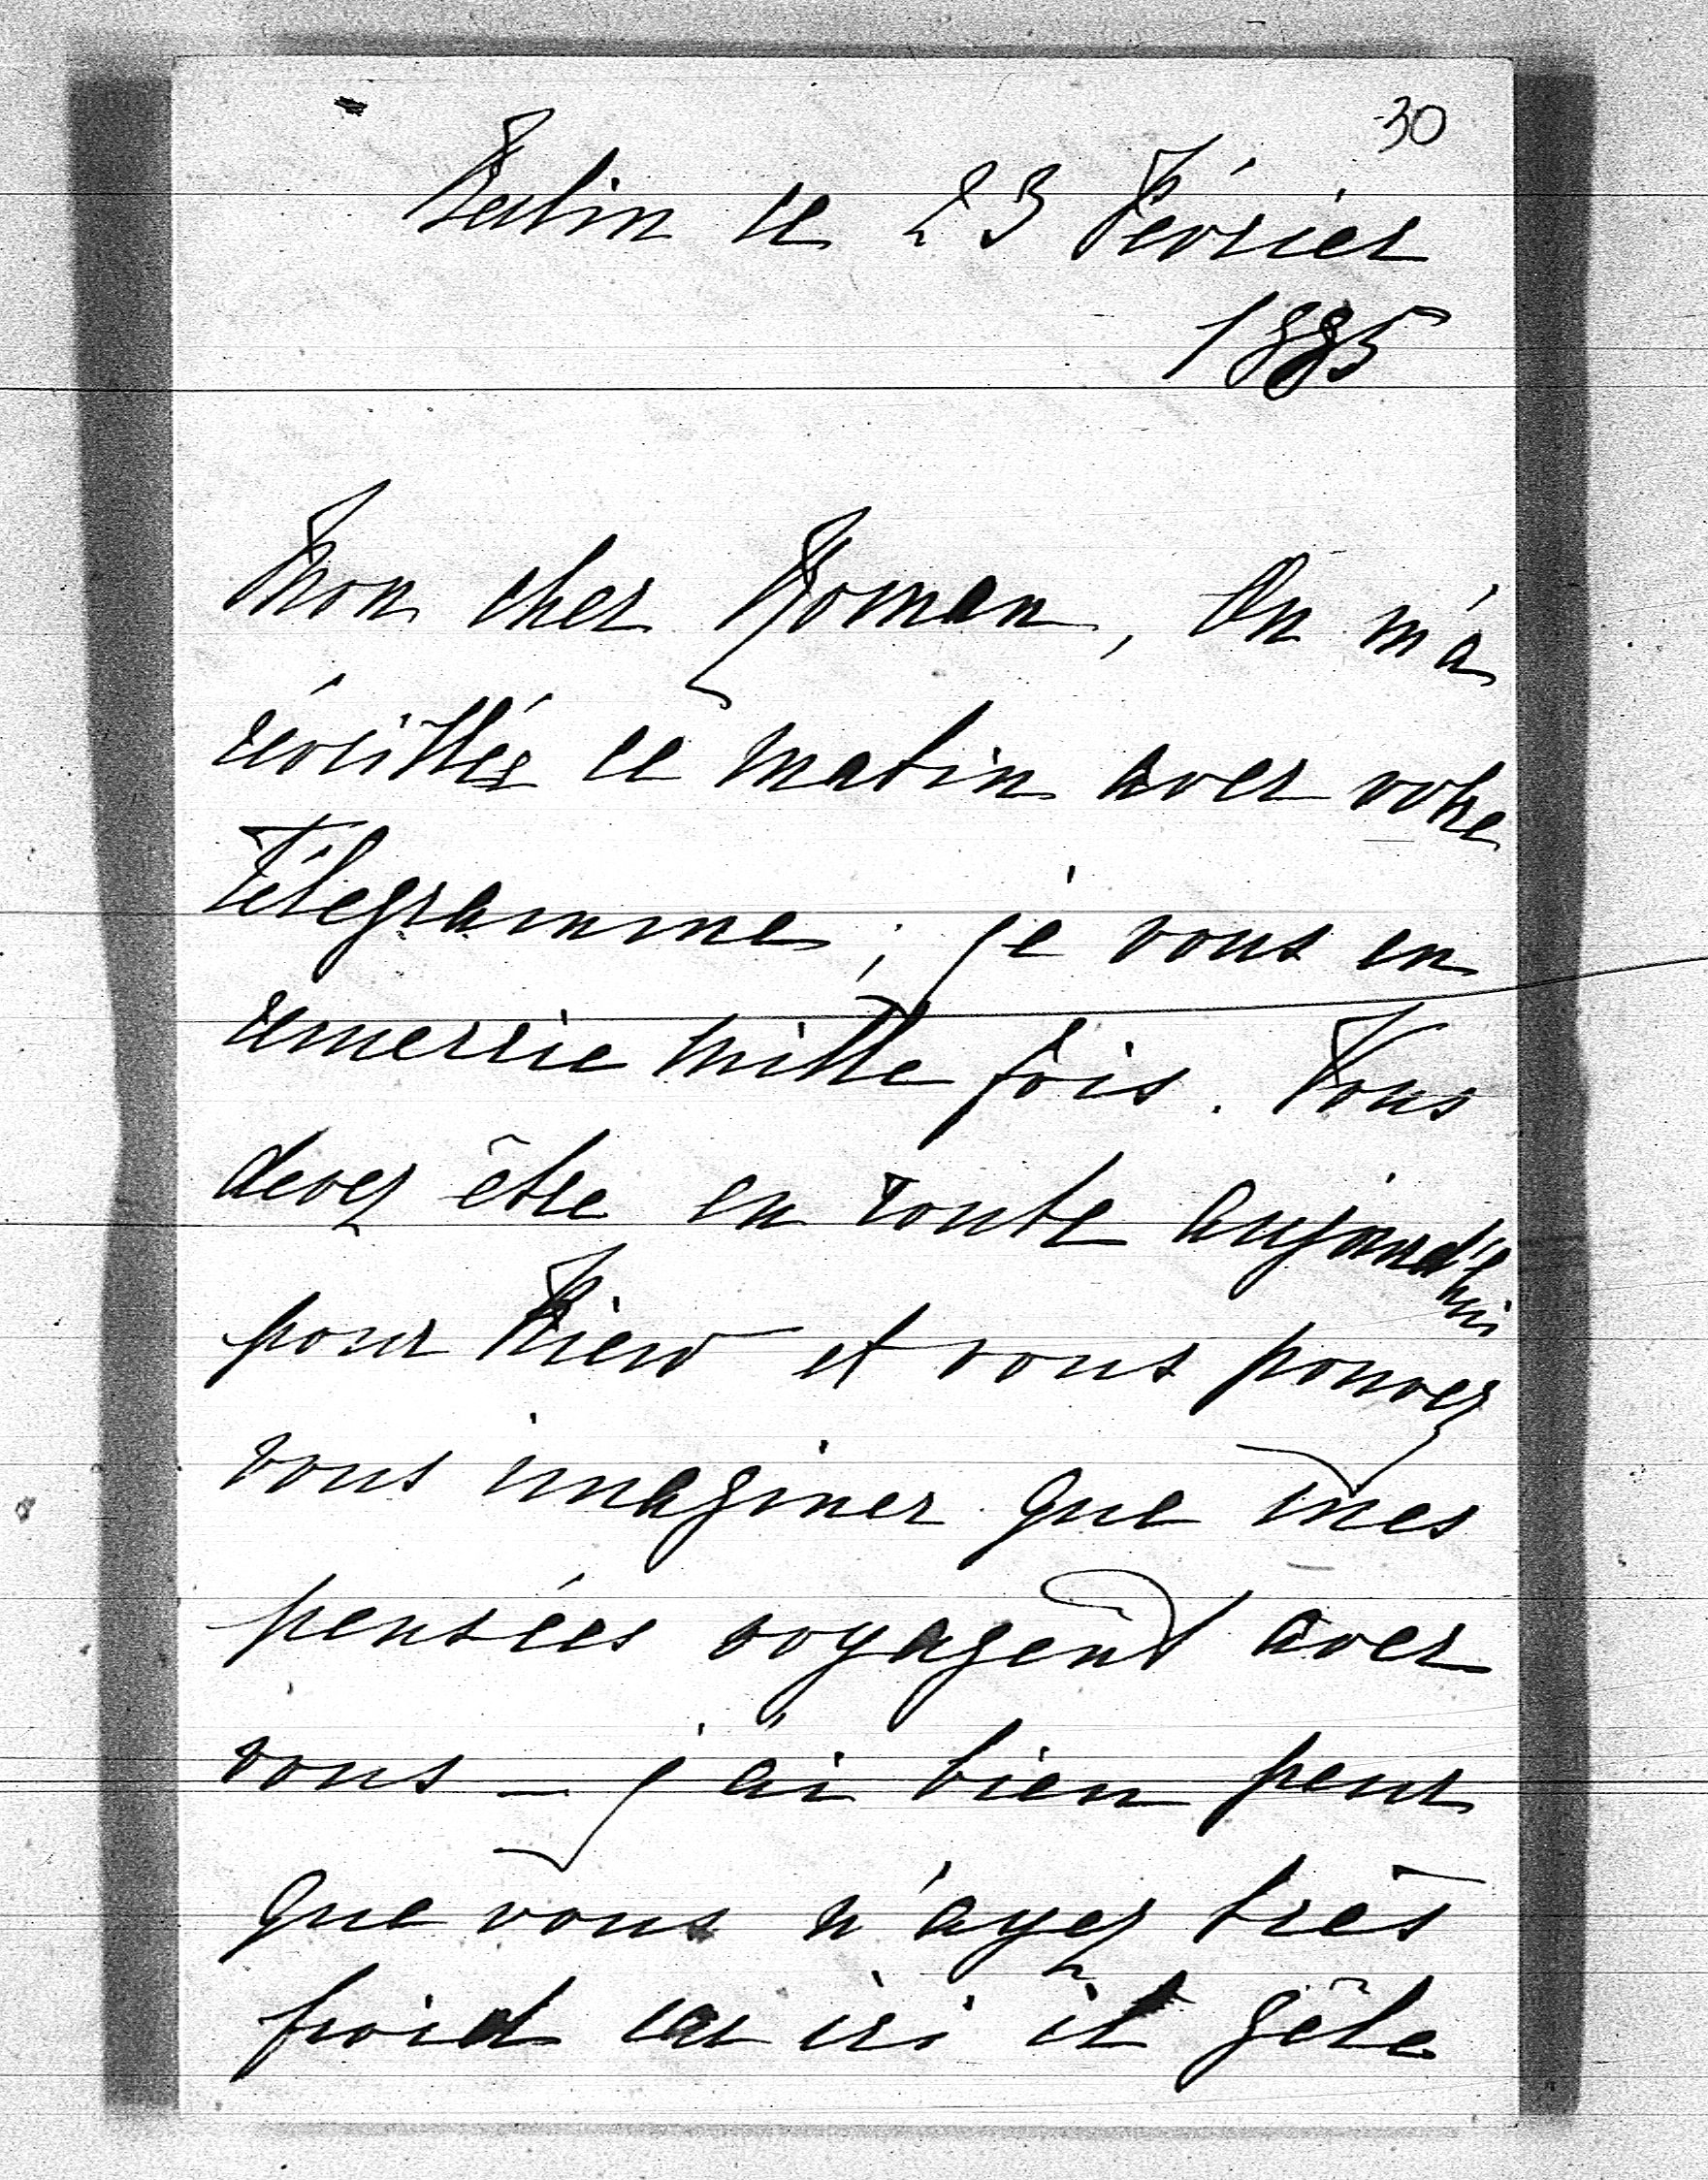 30
Berlin le 23 Février
1885
Mon cher Roman, On m'a
réveillée ce matin avec votre
Télégramme, je vous en
remercie mille fois. Vous
devez être en route aujourd'hui
pour Kiew et vous pouvez
vous imaginer que mes
pensées voyagent avec
vous – j'ai bien peur
que vous n'ayez très
froid car ici il gêle